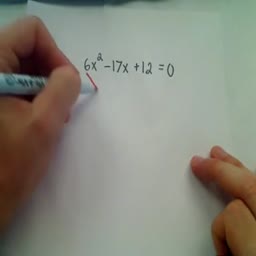 6x² - 17x + 12 = 0